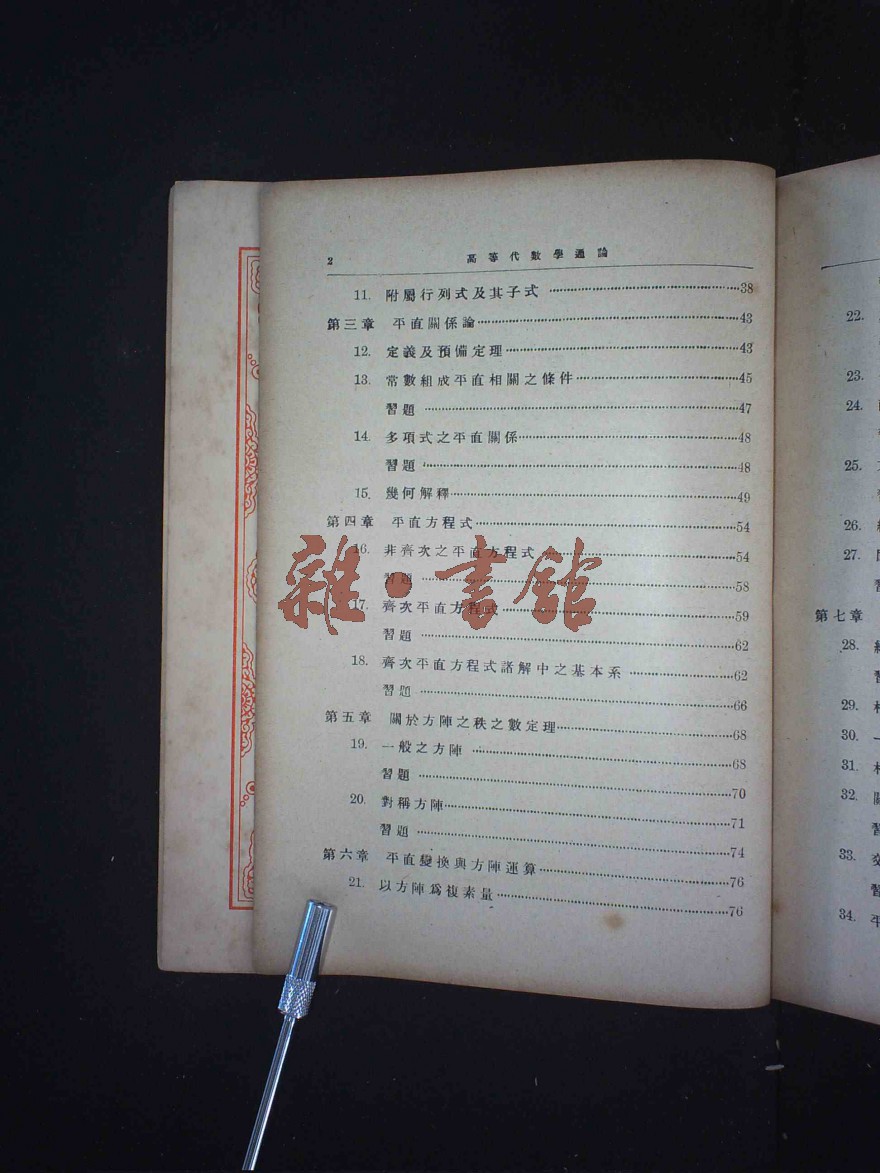 2 高等代數學通論
11. 附屬行列式及其子式 ……38
第三章 平直關係論……43
12. 定義及預備定理……43
13. 常數組成平直相關之條件……45
習題 ……47
14. 多項式之平直關係……48
習題 ……48
15. 幾何解釋……49
第四章 平直方程式……54
16. 非齊次之平直方程式 ……54
習題 ……58
17. 齊次平直方程式 ……59
習題 ……62
18. 齊次平直方程式諸解中之基本系 ……62
習題 ……66
第五章 關於方陣之秩之數定理……68
19. 一般之方陣 ……68
習題 ……70
20. 對稱方陣……71
習題 ……74
第六章 平直變換與方陣運算……76
21. 以方陣爲複素量……76
雜·書館
22.
23.
24.
25.
26.
27.
習
第七章
28.
習
29.
30. 一
31.
32. 關
習
33. 交
習
34. 平